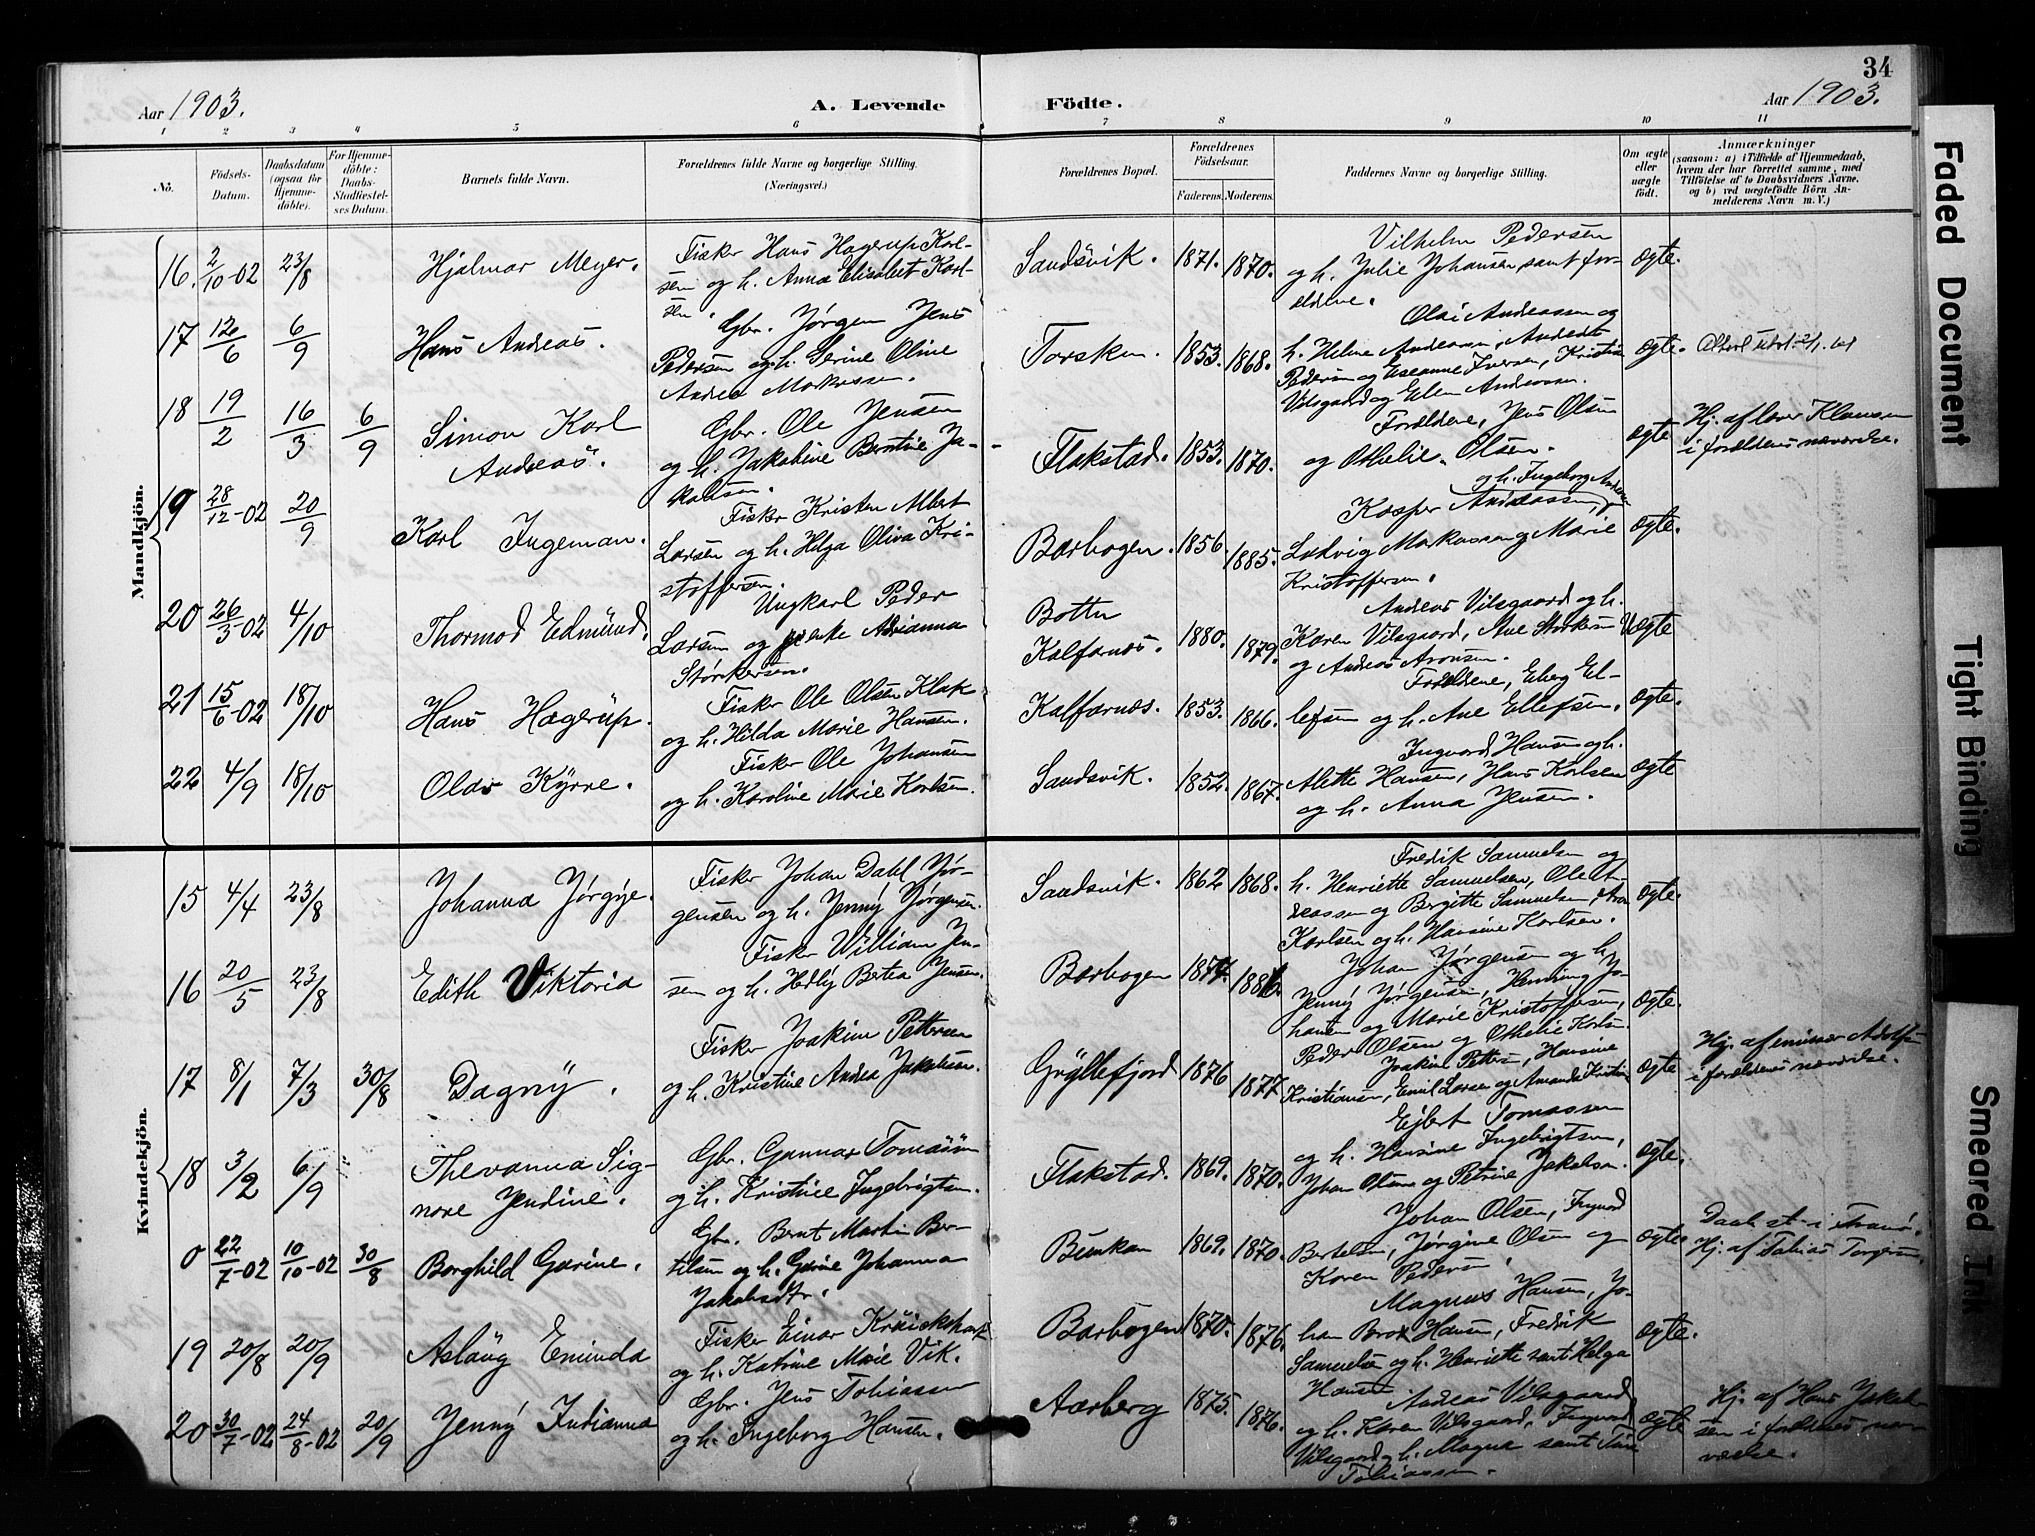 34
Aar 1903.
A. Levende Födte.
Aar 1903.
1 2 3 4 5 6 7 8 9 10 11
No.
Födsels-
Datum.
Daabsdatum
(ogsaa for
Hjemme-
döbte).
For Hjemme-
döbte:
Daabs-
Stadfæstel-
ses Datum.
Barnets fulde Navn.
Forældrenes fulde Navne og borgerlige Stilling.
(Næringsvei.)
Forældrenes Bopæl.
Forældrenes
Födselsaar.
Faderens. Moderens.
Faddernes Navne og borgerlige Stilling.
Om ægte
eller
uægte
födt.
Anmærkninger
(saasom: a) i Tilfælde af Hjemmedaab,
hvem der har forrettet samme, med
Tilföielse af to Daabsvidners Navne.
og b) ved uægtefödte Börn An-
melderens Navn m. V.)
Mandkjön.
16. 2/10-02 23/8 Hjalmar Meyer.
Fisker Hans Hagerup Karl-
sen og h. Anna Elisabet Karl-
sen.
Sandsvik. 1871. 1870.
Vilhelm Pedersen
og h. Julie Johansen samt for-
ældrene.
ægte.
17 12/6 6/9 Hans Andreas.
Gbr. Jørgen Jens
Pedersen og h. Serine Oline
Andrea Markussen.
Torsken. 1853. 1868.
Olai Andreassen og
h. Helene Andreassen, Andreas
Pedersen og Iversen, Kristian
Vilsgaard og Elen Andreassen.
ægte.
18 19/2 16/3 6/9 Simon Karl
Andreas.
Gbr. Ole Jensen
og h. Jakobine Berntine Ja-
kobsen.
Flakstad. 1853. 1870.
Forældrene, Jens Olsen
og Othelie Olsen.
ægte
Hj. af lærer Klausen
i forældrenes nærværelse.
19 28/12-02 20/9 Karl Ingeman.
Fisker Kristen Albert
Larsen og h. Helga Oliva Kri-
stoffersen.
Barbogen. 1856. 1885.
og h. Ingeborg Andreassen
Kasper Andreassen,
Ludvig Markussen og Marie
Kristoffersen.
ægte.
20 26/3-02 4/10 Thormod Edmund.
Ungkarl Peder
Larsen og pike Adrianna
Størkersen.
Botten
Kalfarnæs. 1880. 1879.
Andreas Vilsgaard og h.
Karen Vilsgaard, Ane Størkersen
og Andreas Aronsen.
Uægte
21 15/6-02 18/10 Hans Hagerup.
Fisker Ole Olsen Klak
og h. Hilda Marie Hansen.
Kalfarnæs. 1853. 1866.
Forældrene, Eberg El-
lefsen og h. Ane Ellefsen.
ægte.
22 4/9 18/10 Olav Kyrre.
Fisker Ole Johansen
og h. Karoline Marie Karlsen.
Sandsvik. 1852. 1867.
Ingvard Hansen og h.
Alette Hansen, Hans Karlsen
og h. Anna Jensen.
ægte
Kvindekjön.
15 4/4 23/8 Johanna Jørgye.
Fisker Johan Dahl Jør-
gensen og h. Jenny Jørgensen.
Sandsvik. 1862 1868.
Fredrik Samuelsen og
h. Henriette Samuelsen, Ole An-
dreassen og Bergitte Samuelsen, Aron
Karlsen og h. Hansine Karlsen.
ægte.
16 20/5 23/8 Edith Viktoria
Fisker William Jen-
sen og h. Hedly Bertea Jensen.
Barbogen 1877. 1886.
Johan Jørgensen og h.
Jenny Jørgensen, Henning Jo-
hansen og Marie Kristoffersen,
Peder Olsen og Othelie Karlsen.
ægte.
17 8/1 7/3 30/8 Dagny.
Fisker Joakim Pettersen
og h. Kristine Andrea Jakobsen.
Gryllefjord 1876 1877
Joakim Pettersen, Hansine
Kristiansen, Emil Larsen og Amanda Kristiansen
ægte
Hj. af emissær Adolfsen
i forældrenes nærværelse.
18 3/2 6/9 Thevanna Sig-
nore Jendine.
Gbr. Gunnar Tomassen
og h. Kristine Ingebrigtsen.
Flakstad. 1869. 1870.
Ejbert Tomassen
og h. Hansine Ingebrigtsen,
Johan Olsen og Petrine Jakobsen.
ægte.
0 22/7-02 10/10-02 30/8 Borghild Gurine.
Gbr. Bernt Martin Ber-
tilsen og h. Gurine Johanna
Jakobsdtr.
Bunkan 1869. 1870.
Johan Olsen, Ingvard
Bertelsen, Jørgine Olsen og
Karen Pedersen.
ægte.
Daab st. i Tranø.
Hj. af Tobias Torgersen.
19 20/8 20/9 Aslaug Eminda
Fisker Einar
og h. Katrine Marie Vik.
Barbogen 1870. 1876.
Magnus Hansen, Jo-
han Brox Hansen, Fredrik
Samuelsen og h. Henriette samt Helga
Hansen
ægte.
20 30/7-02 24/8-02 20/9 Jenny Indianna
Gbr. Jens Tobiassen
og h. Ingeborg Hansen.
Aarberg 1875. 1876.
Andreas Vilsgaard
og h. Karen Vilsgaard, Ingvard
Vilsgaard og h. Magna samt
Tobiassen.
ægte
Hj. af Hans Jakob-
sen i forældrenes nær-
værelse.
Faded Document
Tight Binding
Smeared Ink